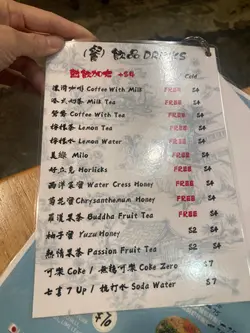 (餐) 飲品 DRINKS
凍飲加 +$4 Cold
Coffee With Milk FREE $4
奶茶 Milk Tea FREE $4
鴛鴦 Coffee With Tea FREE $4
檸檬茶 Lemon Tea FREE $4
檸檬水 Lemon Water FREE $4
美祿 Milo FREE $4
好立克 Horlicks FREE $4
西洋菜蜜 Water Cress Honey FREE $4
菊花蜜 Chrysanthemum Honey FREE $4
羅漢果茶 Buddha Fruit Tea FREE $4
柚子蜜 Yuzu Honey $2 $4
熱情果茶 Passion Fruit Tea $2 $4
可樂 Coke / 無糖可樂 Coke Zero $7
七喜 7 Up / 梳打水 Soda Water $7